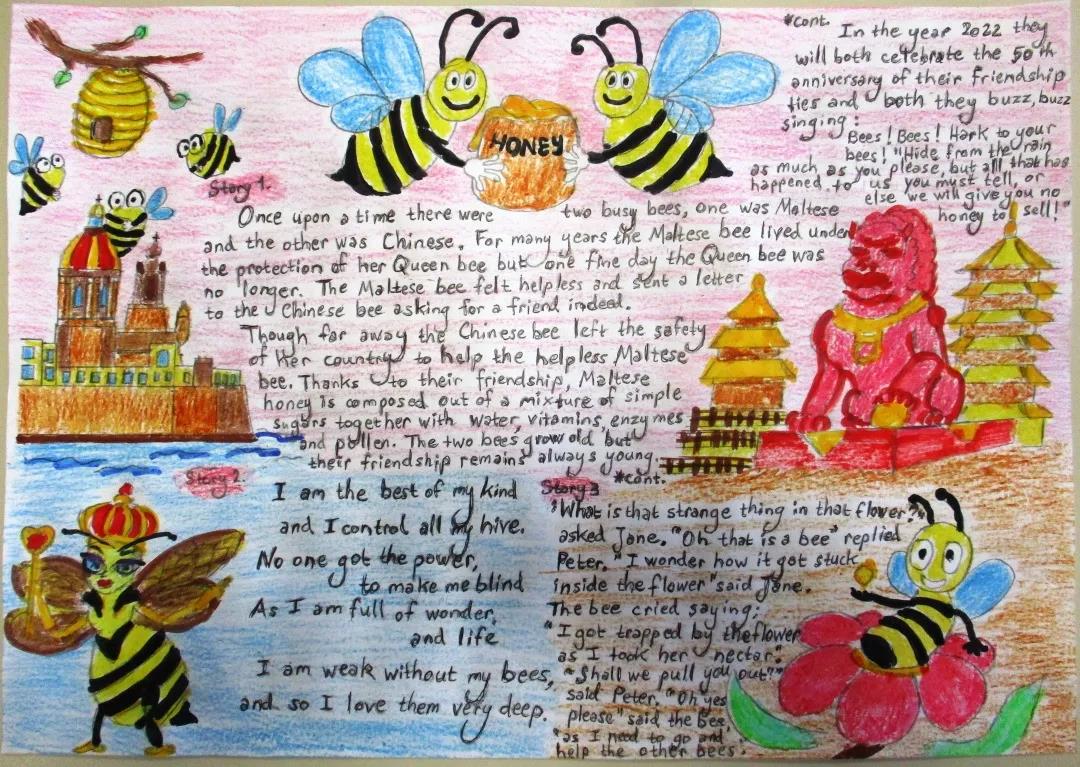 HONEY
Story 1.
Once upon a time there were two busy bees, one was Maltese
and the other was Chinese. For many years the Maltese bee lived under
the protection of her Queen bee but one fine day the Queen bee was
no longer. The Maltese bee felt helpless and sent a letter
to the Chinese bee asking for a friend indeed.
Though far away the Chinese bee left the safety
of her country to help the helpless Maltese
bee. Thanks to their friendship, Maltese
honey is composed out of a mixture of simple
sugars together with water, vitamins, enzymes
and pollen. The two bees grow old but
their friendship remains always young.
*cont.
*cont.
In the year 2022 they
will both celebrate the 50th
anniversary of their friendship
ties and both they buzz, buzz
singing:
Bees! Bees! Hark to your
bees! "Hide from the rain
as much as you please, but all that has
happened to us you must tell, or
else we will give you no
honey to sell!"
Story 2.
I am the best of my kind
and I control all my hive.
No one got the power,
to make me blind
As I am full of wonder,
and life
I am weak without my bees,
and so I love them very deep.
Story 3
"What is that strange thing in that flower?"
asked Jane. "Oh that is a bee" replied
Peter. "I wonder how it got stuck
inside the flower" said Jane.
The bee cried saying:
"I got trapped by the flower
as I took her nectar."
"Shall we pull you out?"
said Peter. "Oh yes
please" said the bee
"as I need to go and
help the other bees".